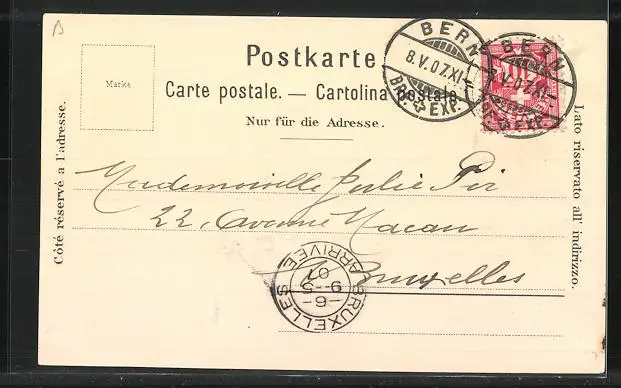 Postkarte.
Carte postale. — Cartolina postale.
Nur für die Adresse.
Marke
Côté réservé à l'adresse.
Lato riservato all' indirizzo.
BERN
8.V.07.XI–
BRF. EXP.
BERN
8.V.07.XI–
EXP.
Mademoiselle Julie Pir
22, avenue Macau
Bruxelles
BRUXELLES
–6–
9–5
07
ARRIVÉE